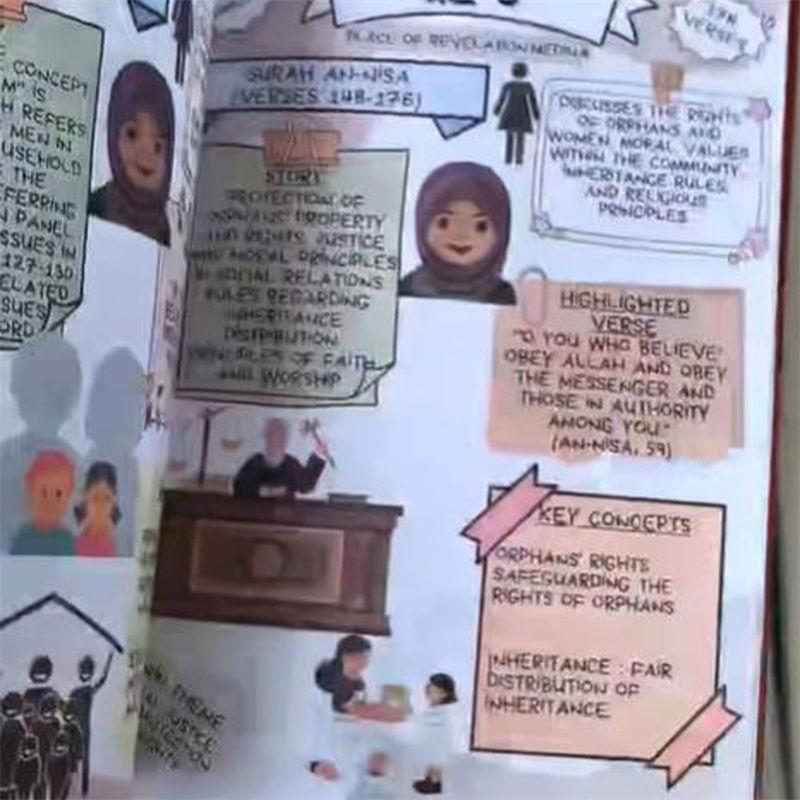 CONCEPT
M" IS
H REFERS
MEN IN
USEHOLD
THE
EFERRING
N PANEL
SSUES IN
127-130
ELATED
SSUES
ORD
PLACE OF REVELATION MEDINA
176
VERSES
SURAH AN-NISA
(VERSES 148-176)
STORY
PROTECTION OF
ORPHANS' PROPERTY
AND RIGHTS JUSTICE
AND MORAL PRINCIPLES
IN SOCIAL RELATIONS
RULES REGARDING
INHERITANCE
DISTRIBUTION
PRINCIPLES OF FAITH
AND WORSHIP
DISCUSSES THE RIGHTS
OF ORPHANS AND
WOMEN MORAL VALUES
WITHIN THE COMMUNITY
INHERITANCE RULES
AND RELIGIOUS
PRINCIPLES
HIGHLIGHTED
VERSE
"O YOU WHO BELIEVE'
OBEY ALLAH AND OBEY
THE MESSENGER AND
THOSE IN AUTHORITY
AMONG YOU."
(AN-NISA, 59)
KEY CONCEPTS
ORPHANS' RIGHTS
SAFEGUARDING THE
RIGHTS OF ORPHANS
INHERITANCE : FAIR
DISTRIBUTION OF
INHERITANCE
THEME
JUSTICE